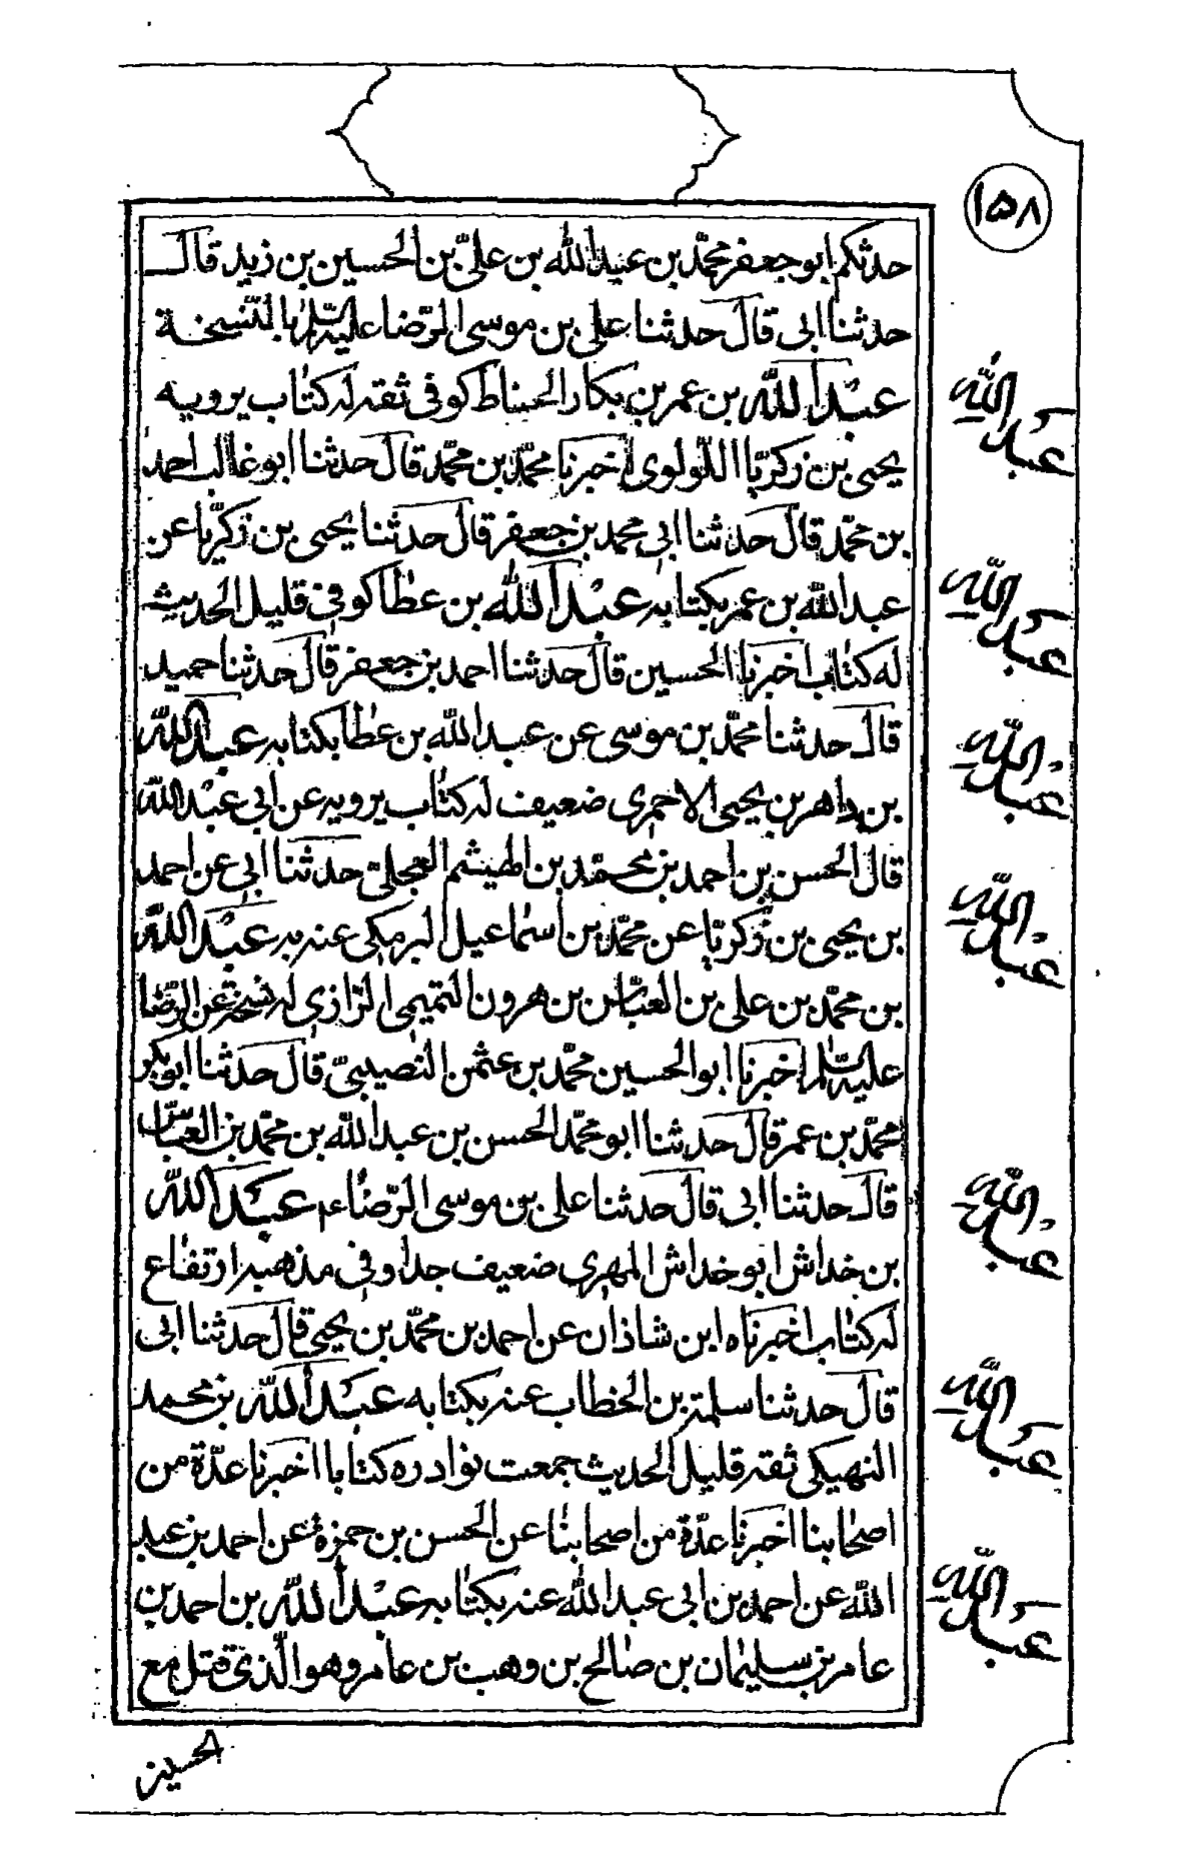 ١٥٨
حدثكم ابو جعفر محمّد بن عبد الله بن علىّ بن الحسين بن زيد قال
حدثنا ابى قال حدثنا على بن موسى الرّضا عليه السّلم بالنّسخة
عبد الله بن عمر بن بكار الحناط كوفى ثقه له كتاب يرويه
يحيى بن زكريّا اللّولوى اخبرنا محمّد بن محمّد قال حدثنا ابو غالب احمد
بن محمّد قال حدثنا ابى محمد بن جعفر قال حدثنا يحيى بن زكريّا عن
عبد الله بن عمر بكتابه عبد الله بن عطا كوفى قليل الحديث
له كتاب اخبرنا الحسين قال حدثنا احمد بن جعفر قال حدثنا حميد
قال حدثنا محمّد بن موسى عن عبد الله بن عطا بكتابه عبد الله
بن داهر بن يحيى الاحمرى ضعيف له كتاب يرويه عن ابى عبد الله
قال الحسن بن احمد بن محمّد بن الهيثم العجلىّ حدثنا ابى عن احمد
بن يحيى بن زكريّا عن محمّد بن اسماعيل البرمكى عنه به عبد الله
بن محمّد بن على بن العبّاس بن هرون التميمى الرّازى له نسخة عن الرّضا
عليه السّلم اخبرنا ابو الحسين محمّد بن عثمن النصيبىّ قال حدثنا ابو بكر
محمّد بن عمر قال حدثنا ابو محمّد الحسن بن عبد الله بن محمّد بن العبّاس
قال حدثنا ابى قال حدثنا على بن موسى الرّضا ء م عبد الله
بن خداش ابو خداش المهرى ضعيف جدا وفى مذهبه ارتفاع
له كتاب اخبرناه ابن شاذان عن احمد بن محمّد بن يحيى قال حدثنا ابى
قال حدثنا سلمة بن الخطاب عنه بكتابه عبد الله بن محمد
النهيكى ثقه قليل الحديث جمعت نوادره كتابا اخبرنا عدّة من
اصحابنا اخبرنا عدّة من اصحابنا عن الحسن بن حمزة عن احمد بن عبد
الله عن احمد بن ابى عبد الله عنه بكتابه عبد الله بن احمد بن
عامر بن سليمان بن صالح بن وهب بن عامر وهو الّذى قتل مع
الحسين
عبد الله
عبد الله
عبد الله
عبد الله
عبد الله
عبد الله
عبد الله